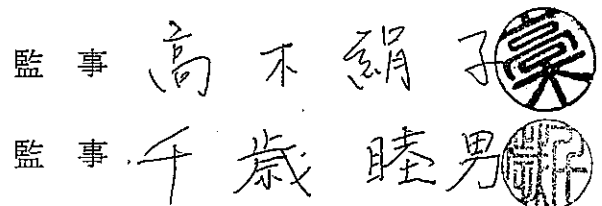 監事 高木絹子
監事 千歳睦男